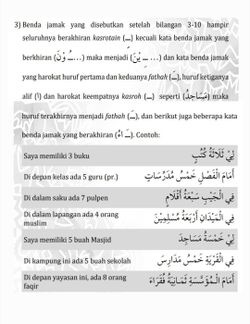 3) Benda jamak yang disebutkan setelah bilangan 3-10 hampir
seluruhnya berakhiran kasrotain (ـٍـ) kecuali kata benda jamak yang
berkhiran (ـُوْنَ ...) maka menjadi (ـِيْنَ ...) dan kata benda jamak
yang harokat huruf pertama dan keduanya fathah (ـَـ), huruf ketiganya
alif (ا) dan harokat keempatnya kasroh (ـِـ) seperti (مَسَاجِدُ) maka
huruf terakhirnya menjadi fathah (ـَـ), dan berikut juga beberapa kata
benda jamak yang berakhiran (ـَاءُ). Contoh:
Saya memiliki 3 buku لِيْ ثَلَاثَةُ كُتُبٍ
Di depan kelas ada 5 guru (pr.) أَمَامَ الْفَصْلِ خَمْسُ مُدَرِّسَاتٍ
Di dalam saku ada 7 pulpen فِي الْجَيْبِ سَبْعَةُ أَقْلَامٍ
Di dalam lapangan ada 4 orang
muslim فِي الْمَيْدَانِ أَرْبَعَةُ مُسْلِمِيْنَ
Saya memiliki 5 buah Masjid لِيْ خَمْسَةُ مَسَاجِدَ
Di kampung ini ada 5 buah sekolah فِي الْقَرْيَةِ خَمْسُ مَدَارِسَ
Di depan yayasan ini, ada 8 orang
faqir أَمَامَ الْمُؤَسَّسَةِ ثَمَانِيَةُ فُقَرَاءَ